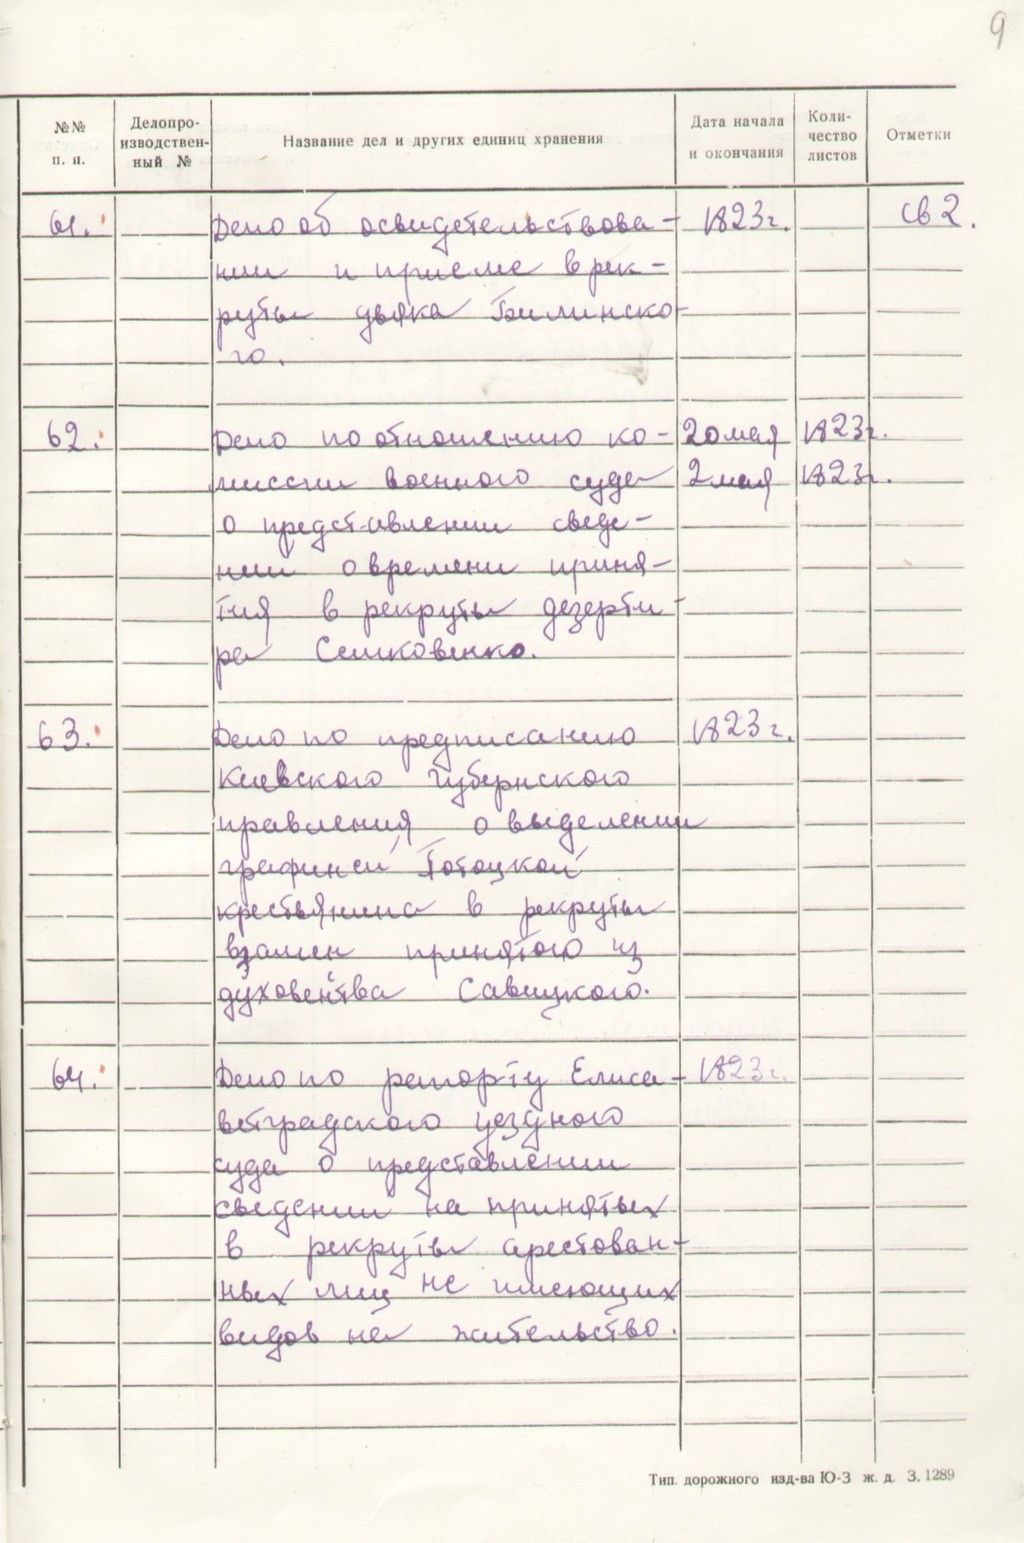 9
№№ п. п. Делопроизводственный № Название дел и других единиц хранения Дата начала и окончания Количество листов Отметки
61. Дело об освидетельствова- 1823г. св 2.
нии и приеме в рек-
руты дьяка Билинско-
го.
62. Дело по отношению ко- 20 мая 1823г.
миссии военного суда 2 мая 1823г.
о представлении сведе-
нии о времени приня-
тия в рекруты дезерти-
ра Сешковенко.
63. Дело по предписанию 1823г.
Киевского губернского
правления о выделении
графиней Потоцкой
крестьянина в рекруты
взамен принятого из
духовенства Савицкого.
64. Дело по рапорту Елиса- 1823г.
ветградского уездного
суда о представлении
сведении на принятых
в рекруты арестован-
ных лиц не имеющих
видов на жительство.
Тип. дорожного изд-ва Ю-З ж. д. З. 1289